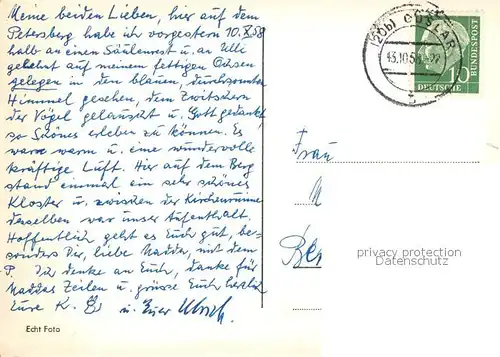 Meine beiden Lieben, hier auf dem
Petersberg habe ich vorgestern 10.X.58
halb an einen Säulenrest u. an Ulli
gelehnt auf meinem fettigen Ochsen
gelegen in den blauen, durchsonnten
Himmel gesehen, dem Zwitschern
der Vögel gelauscht u. Gott gedankt
so Schönes erleben zu können. Es
war warm u. eine wundervolle
kräftige Luft. Hier auf dem Berg
stand einmal ein sehr schönes
Kloster u. zwischen der Kirchenruine
desselben war unser Aufenthalt.
Hoffentlich geht es Euch gut, be-
sonders Dir, liebe mit dem
P. Ich denke an Euch, danke für
Zeilen u. grüsse Euch herzlich
Eure K. u. Euer Ulrich.
Echt Foto
(20b) GOSLAR
13.10.58
DEUTSCHE
BUNDESPOST
10
Frau
M
Be
privacy protection
Datenschutz